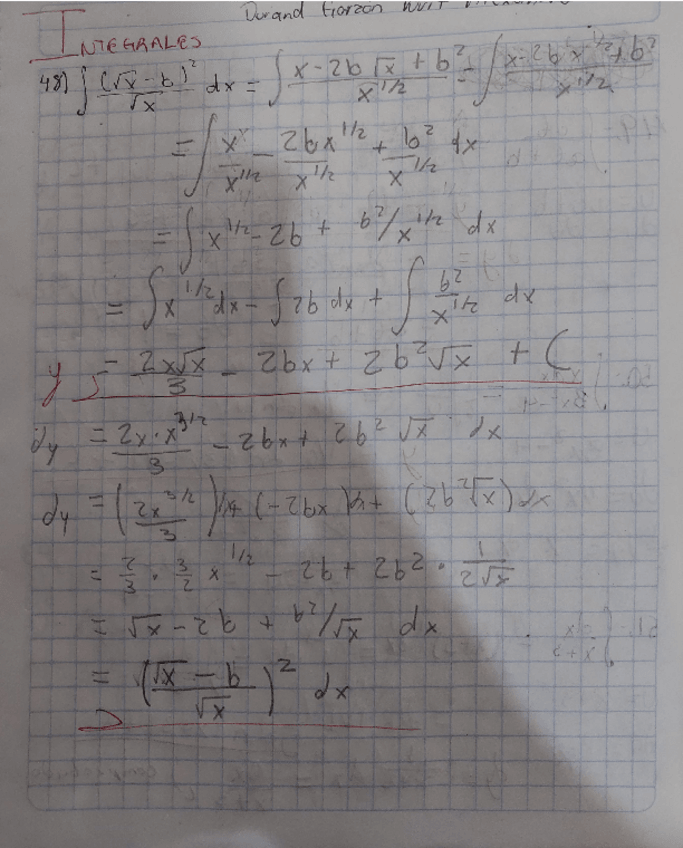 Durand Garzon
INTEGRALES
48) ∫ (√x - b)² / √x dx = ∫ x - 2b √x + b² / x^1/2 = ∫ x - 2b x^1/2 + b² / x^1/2
= ∫ x / x^1/2 - 2bx^1/2 / x^1/2 + b² / x^1/2 dx
= ∫ x^1/2 - 2b + b²/x^1/2 dx
= ∫ x^1/2 dx - ∫ 2b dx + ∫ b² / x^1/2 dx
y = 2x√x / 3 - 2bx + 2b²√x + C
dy = 2x·x^3/2 / 3 - 2bx + 2b² √x dx
dy = (2x^3/2 / 3) + (-2bx) + (2b²√x) dx
= 2/3 · 3/2 x^1/2 - 2b + 2b² · 1 / 2√x
= √x - 2b + b²/√x dx
= (√x - b / √x)² dx